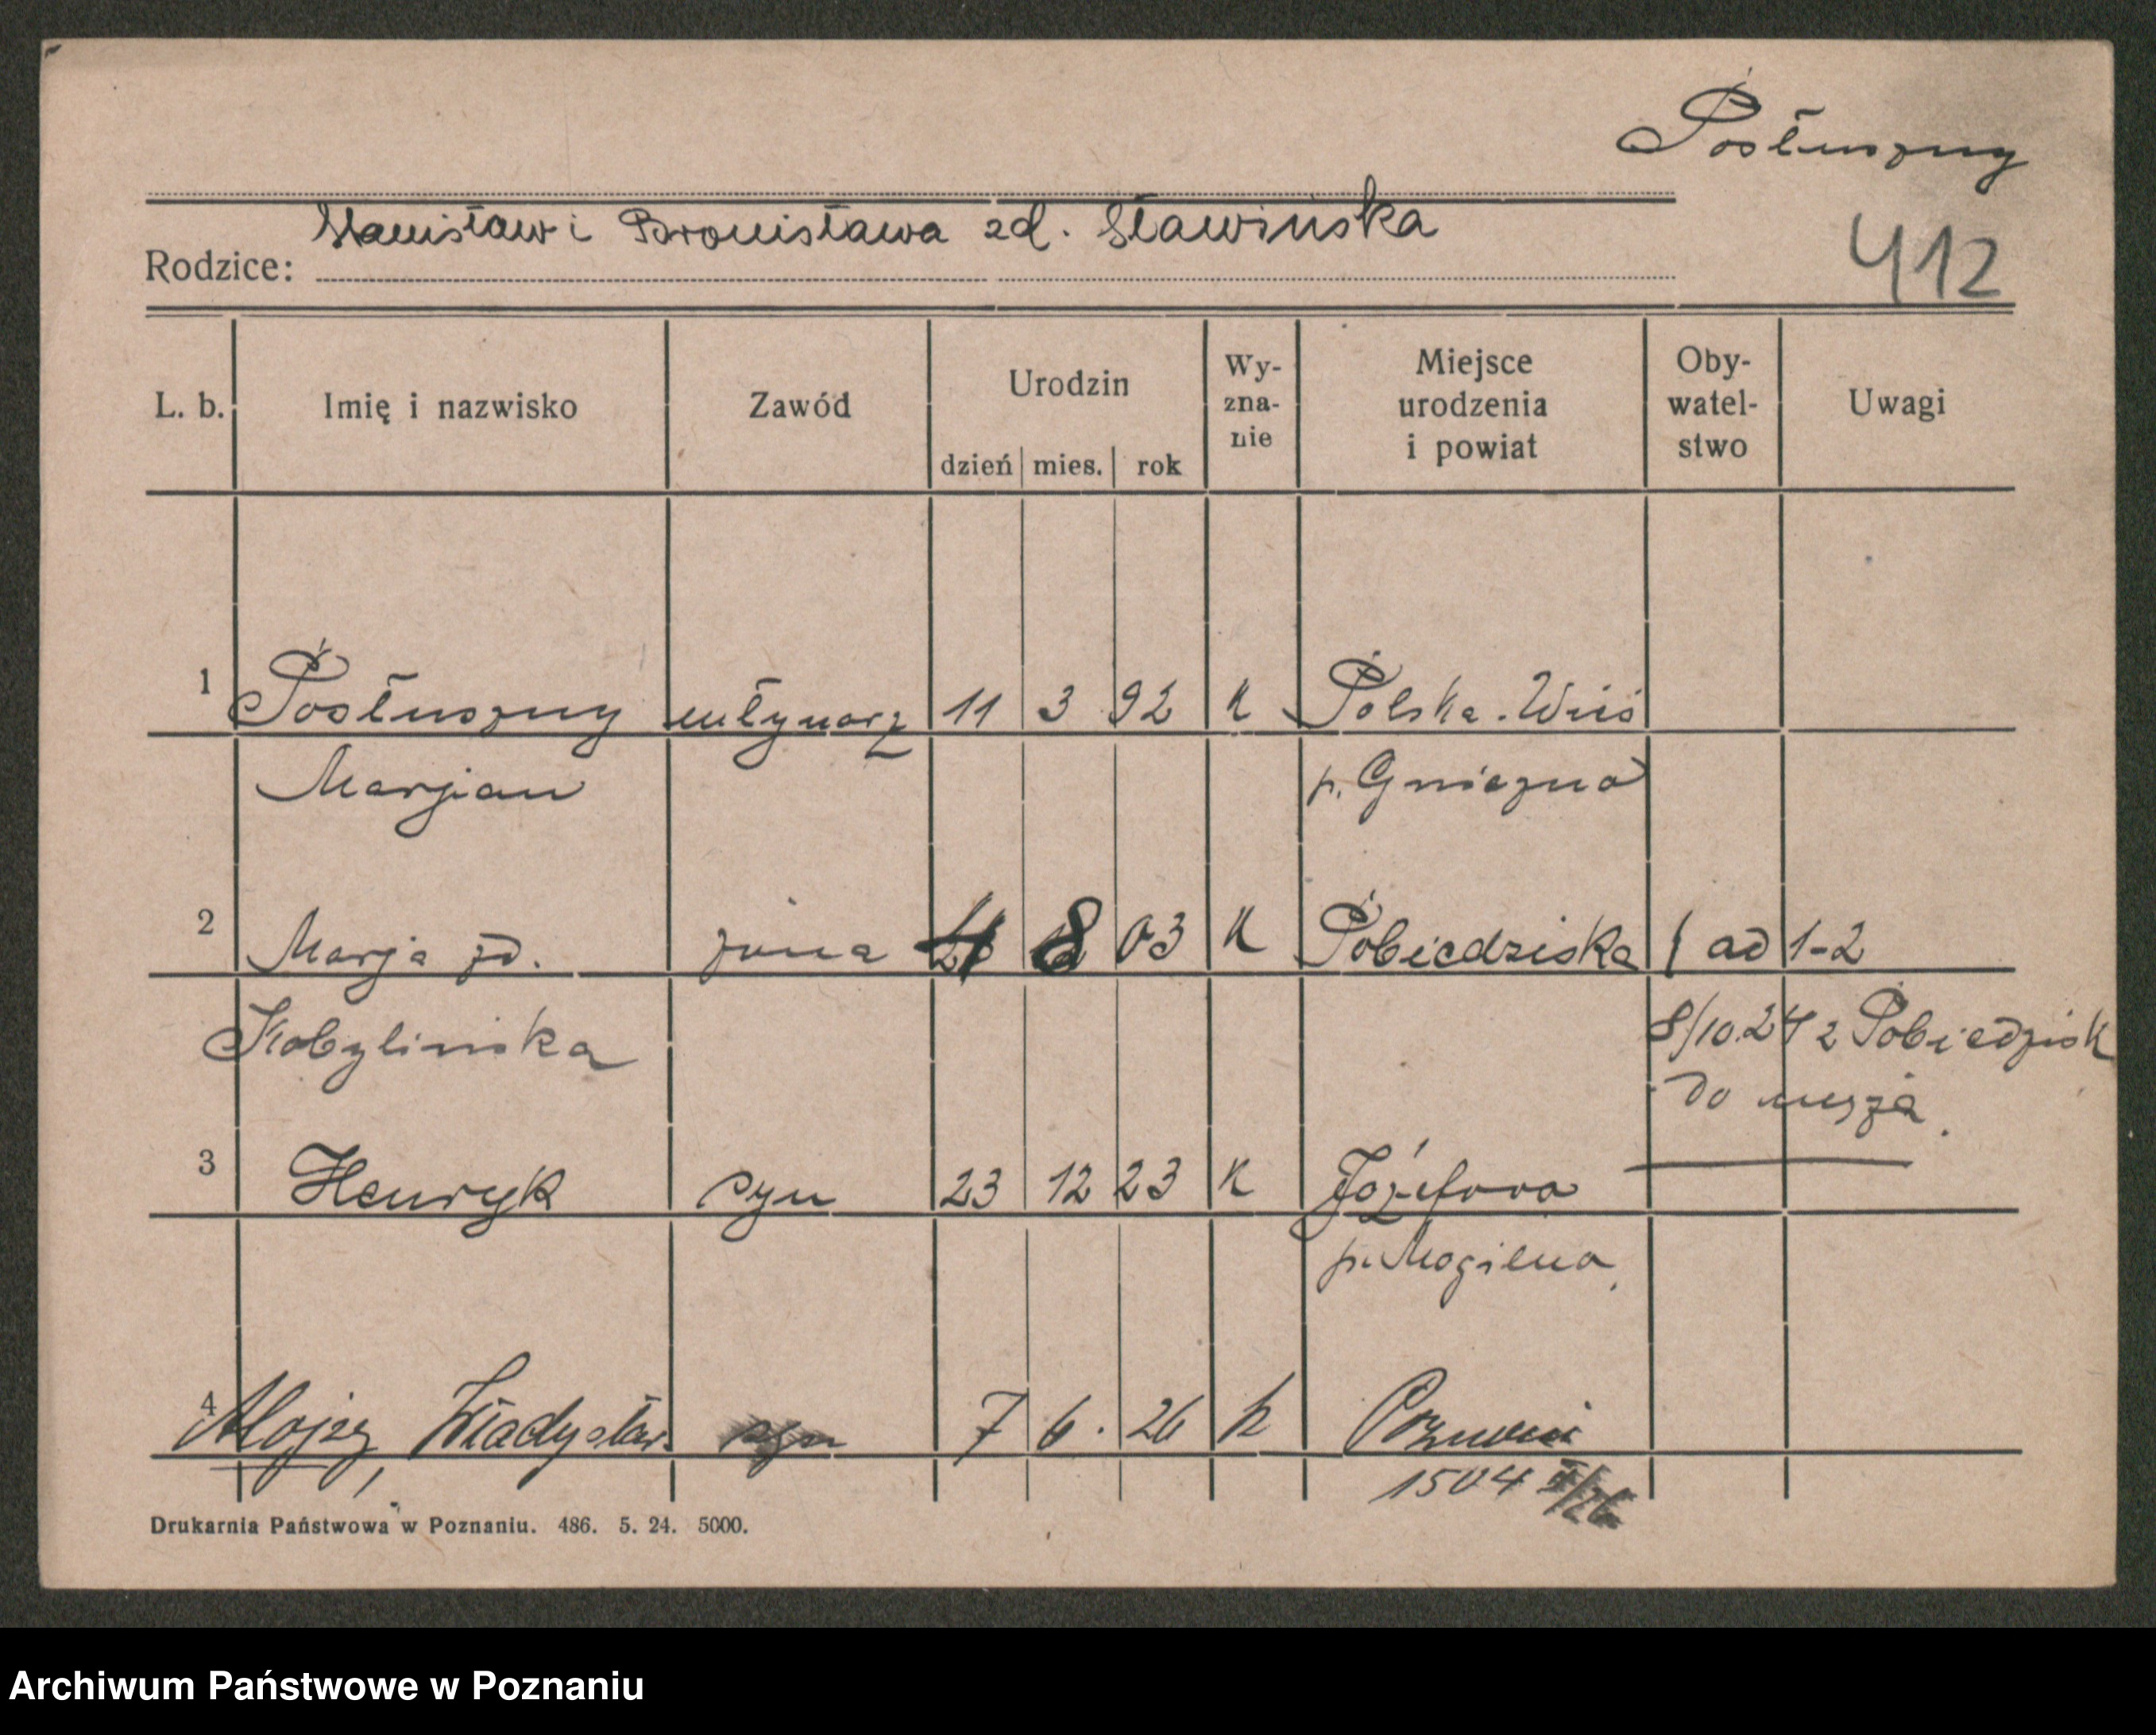 Posłuszny
Stanisław i Bronisława zd. Sławińska
Rodzice:
412
L. b. Imię i nazwisko Zawód Urodzin dzień mies. rok Wy-zna-nie Miejsce urodzenia i powiat Oby-watel-stwo Uwagi
1 Posłuszny młynarz 11 3 92 K Polska-Wieś
Marjan p. Gniezno
2 Marja zd. żona 4 8 03 K Pobiedziska ( ad 1-2
Kobylińska 8/10.24 z Pobiedzisk
do męża.
3 Henryk syn 23 12 23 K Józefowo
p. Mogilno
4 Alojzy, Władysław syn 7 6. 26 k Poznań
1504
Drukarnia Państwowa w Poznaniu. 486. 5. 24. 5000.
Archiwum Państwowe w Poznaniu